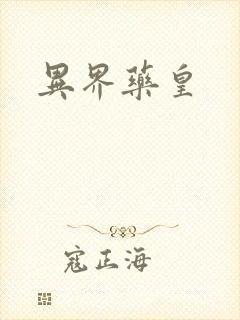 異界藥皇
寇正海